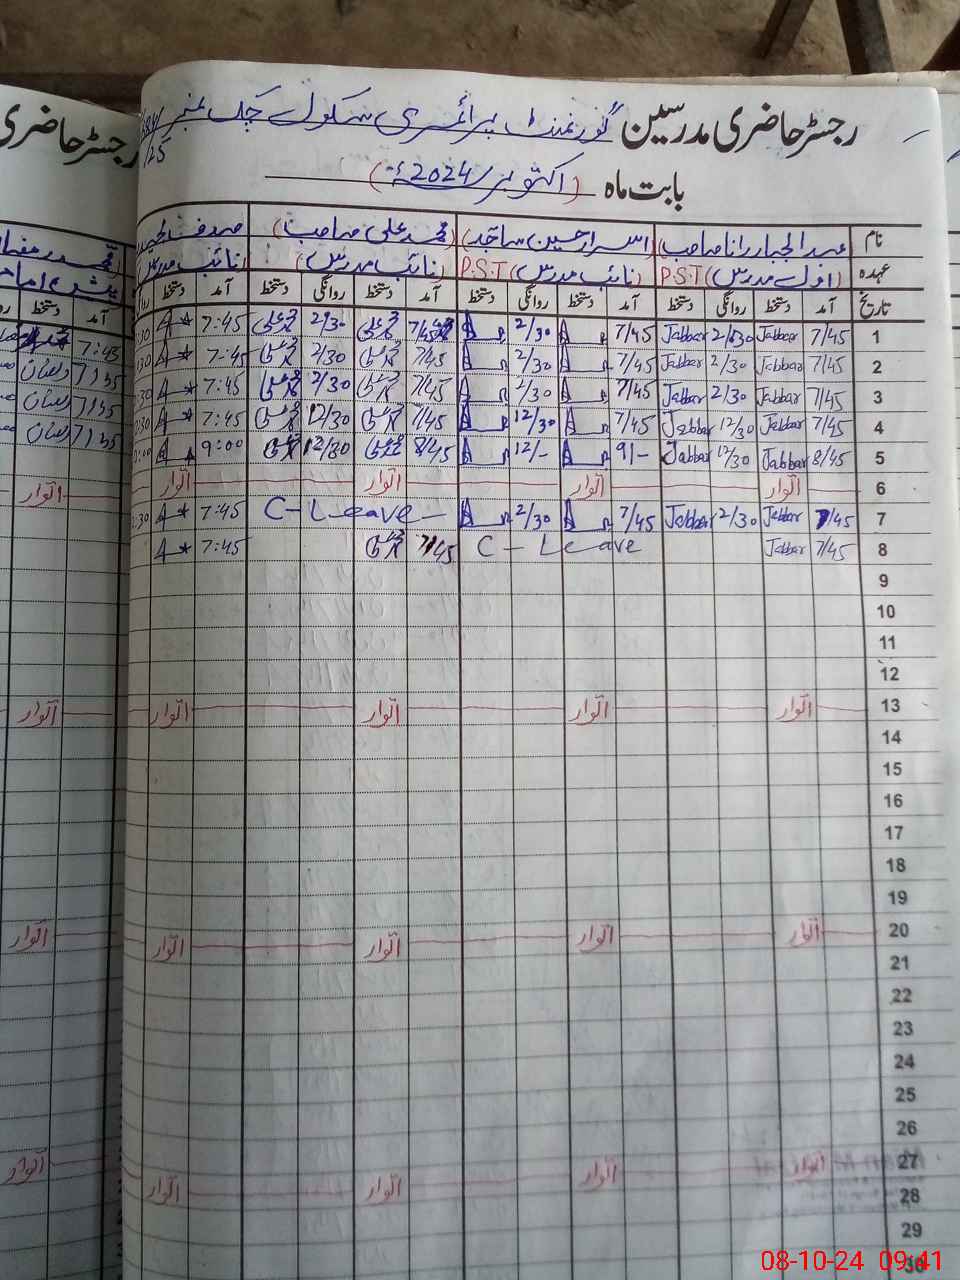 رجسٹر حاضری مدرسین گورنمنٹ پرائمری سکول چک نمبر
بابت ماہ (اکتوبر 2024ء)
نام عبدالجبار رانا صاحب (اسرار حسین ساجد) (محمد علی صاحب)
عہدہ (اول مدرس) P.S.T (نائب مدرس) P.S.T (نائب مدرس) (نائب مدرس)
تاریخ آمد دستخط روانگی دستخط آمد دستخط روانگی دستخط آمد دستخط روانگی دستخط آمد دستخط
1 7/45 Jabbar 2/30 Jabbar 7/45 2/30 7/45 2/30 7:45
2 7/45 Jabbar 2/30 Jabbar 7/45 2/30 7/45 2/30 7:45
3 7/45 Jabbar 2/30 Jabbar 7/45 2/30 7/45 2/30 7:45
4 7/45 Jabbar 12/30 Jabbar 7/45 12/30 7/45 12/30 7:45
5 8/45 Jabbar 12/30 Jabbar 9/- 12/- 8/45 12/30 9:00
6 اتوار اتوار اتوار اتوار
7 7/45 Jabbar 2/30 Jabbar 7/45 2/30 C-Leave 7:45
8 7/45 Jabbar C-Leave 7/45 7:45
9
10
11
12
13 اتوار اتوار اتوار اتوار
14
15
16
17
18
19
20 اتوار اتوار اتوار اتوار
21
22
23
24
25
26
27 اتوار اتوار اتوار اتوار
28
29
30
رجسٹر حاضری
آمد دستخط
7:45
7/35
7/35
7/35
اتوار
اتوار
اتوار
اتوار
08-10-24 09:41